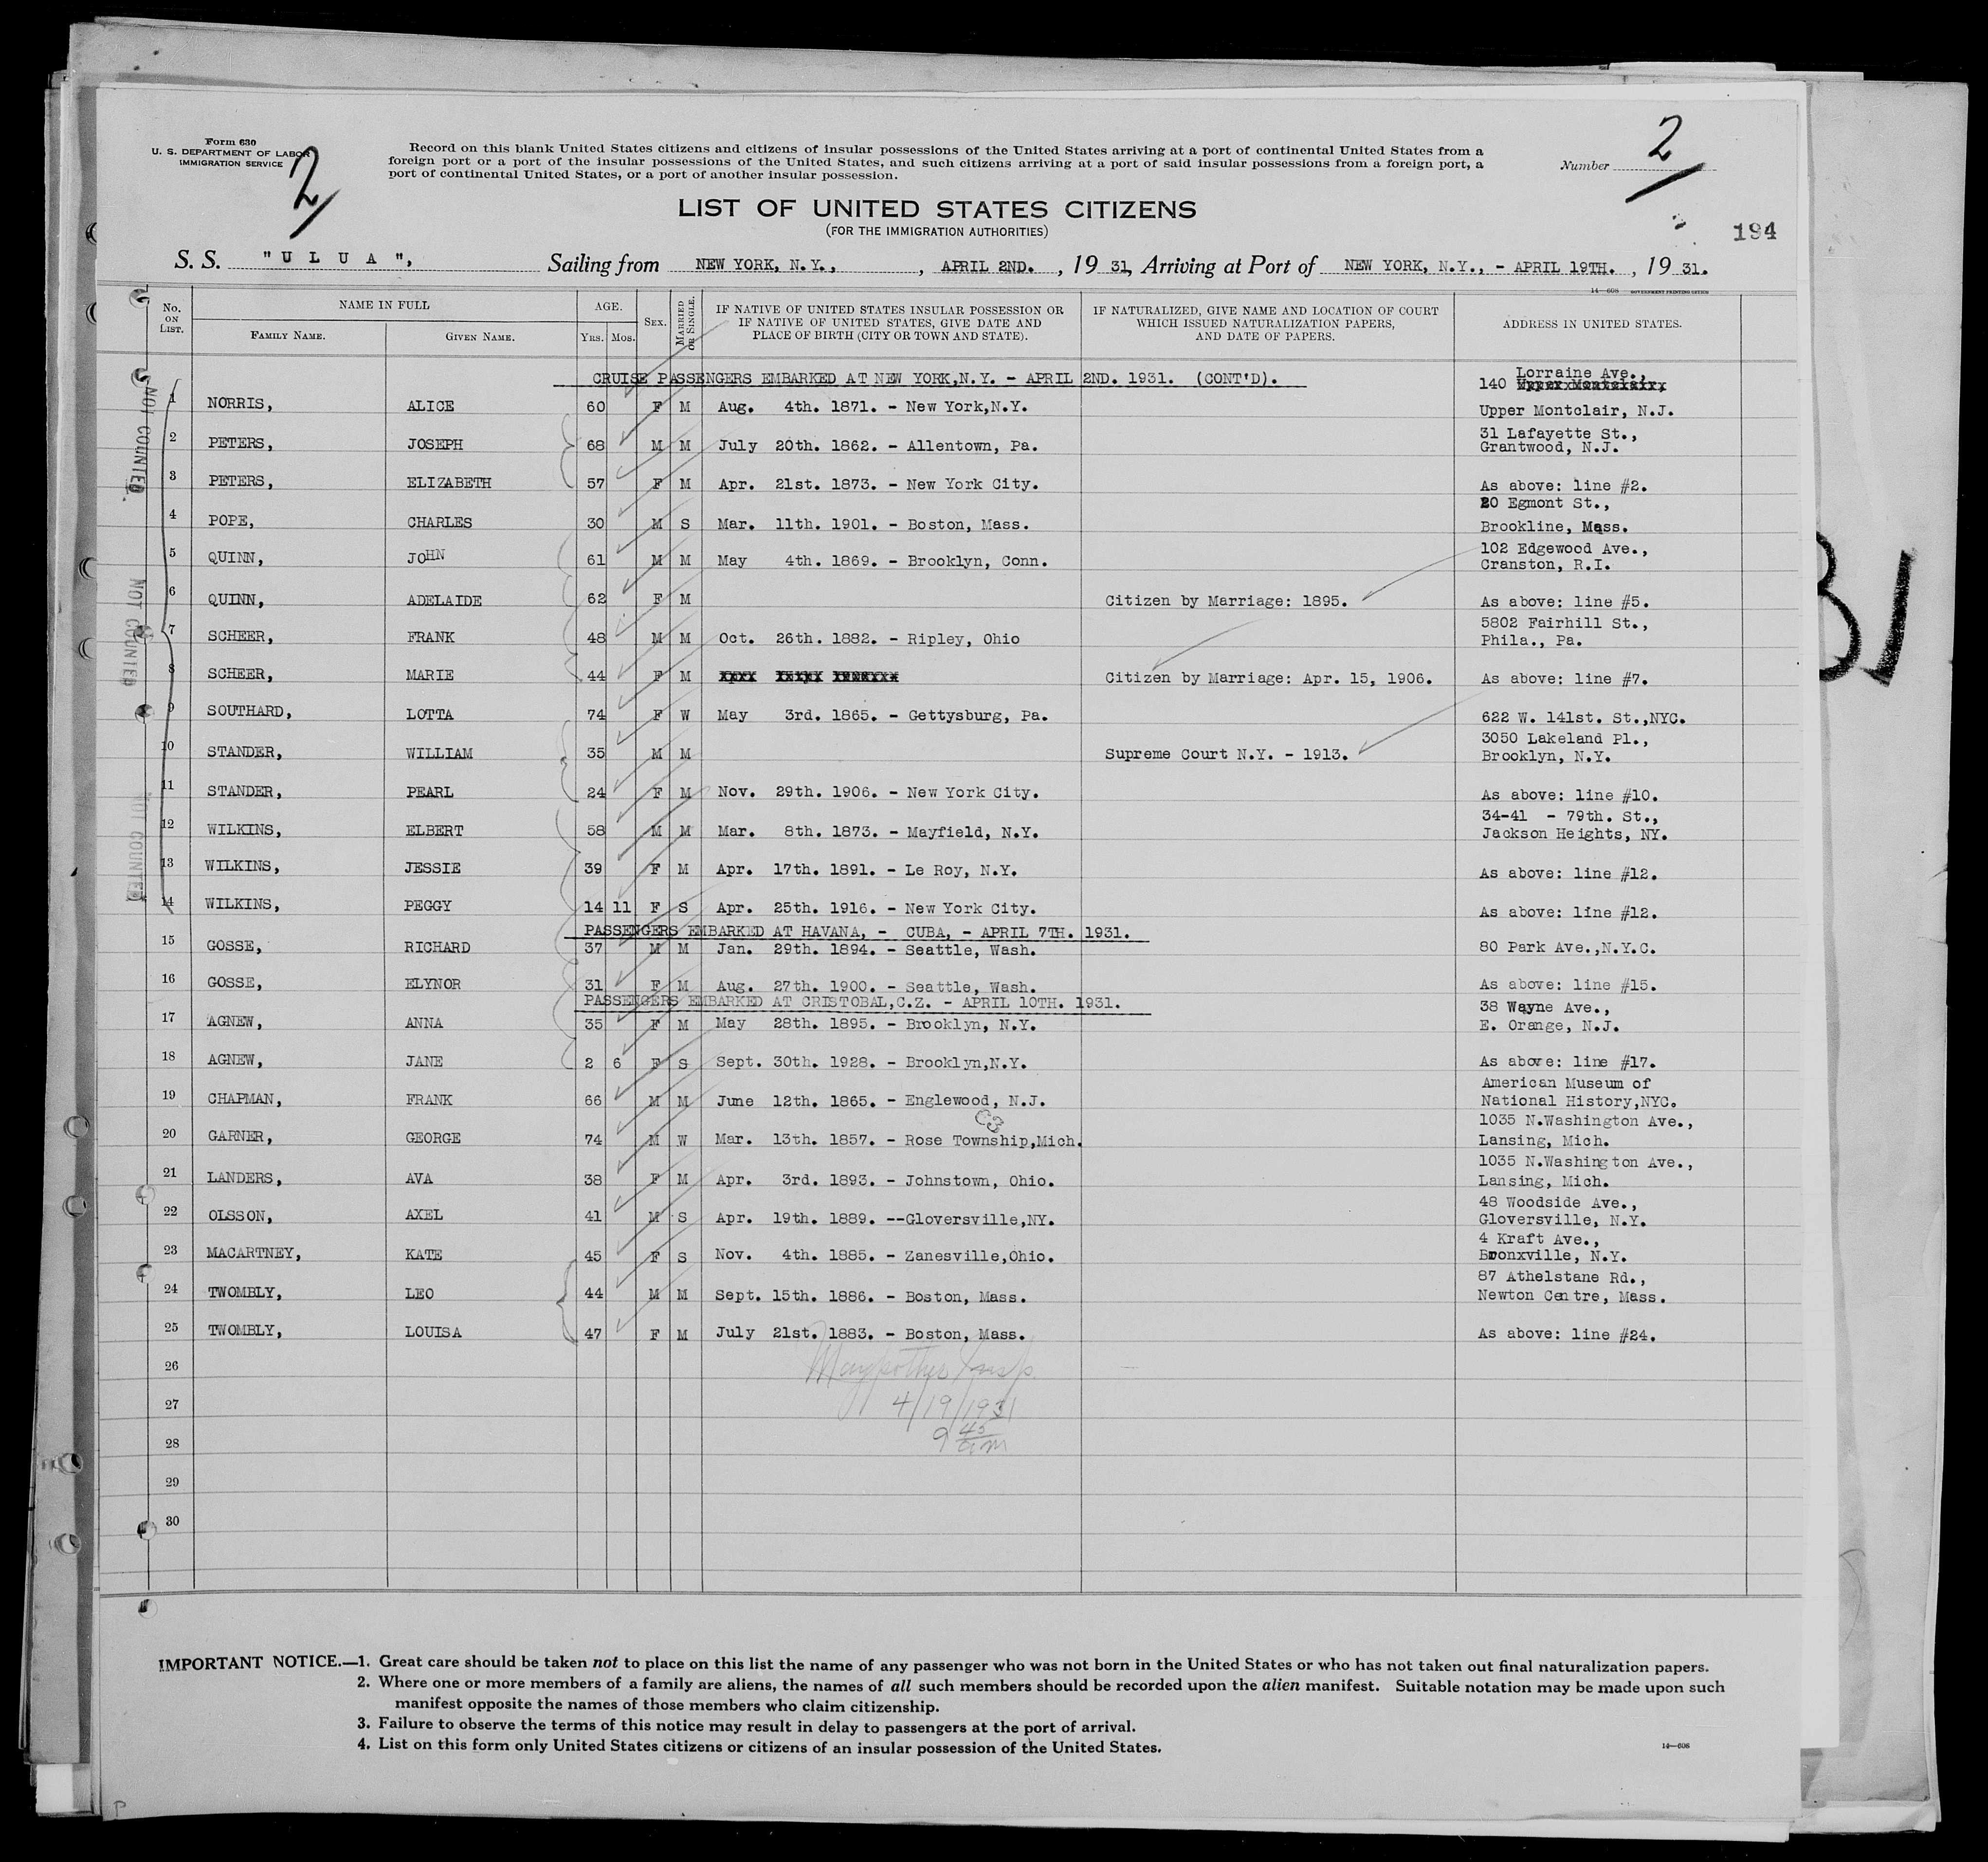 Form 630
U. S. DEPARTMENT OF LABOR
IMMIGRATION SERVICE
2
Record on this blank United States citizens and citizens of insular possessions of the United States arriving at a port of continental United States from a
foreign port or a port of the insular possessions of the United States, and such citizens arriving at a port of said insular possessions from a foreign port, a
port of continental United States, or a port of another insular possession.
Number 2
LIST OF UNITED STATES CITIZENS
(FOR THE IMMIGRATION AUTHORITIES)
194
S. S. "U L U A", Sailing from NEW YORK, N.Y., , APRIL 2ND. , 19 31, Arriving at Port of NEW YORK, N.Y., - APRIL 19TH. , 19 31.
14—608 GOVERNMENT PRINTING OFFICE
No. ON LIST. NAME IN FULL FAMILY NAME. GIVEN NAME. AGE. YRS. MOS. SEX. MARRIED OR SINGLE. IF NATIVE OF UNITED STATES INSULAR POSSESSION OR IF NATIVE OF UNITED STATES, GIVE DATE AND PLACE OF BIRTH (CITY OR TOWN AND STATE). IF NATURALIZED, GIVE NAME AND LOCATION OF COURT WHICH ISSUED NATURALIZATION PAPERS, AND DATE OF PAPERS. ADDRESS IN UNITED STATES.
CRUISE PASSENGERS EMBARKED AT NEW YORK,N.Y. - APRIL 2ND. 1931. (CONT'D).
Lorraine Ave.,
140 Upper Montclair,
1 NORRIS, ALICE 60 F M Aug. 4th. 1871. - New York,N.Y. Upper Montclair, N.J.
31 Lafayette St.,
2 PETERS, JOSEPH 68 M M July 20th. 1862. - Allentown, Pa. Grantwood, N.J.
3 PETERS, ELIZABETH 57 F M Apr. 21st. 1873. - New York City. As above: line #2.
20 Egmont St.,
4 POPE, CHARLES 30 M S Mar. 11th. 1901. - Boston, Mass. Brookline, Mass.
102 Edgewood Ave.,
5 QUINN, JOHN 61 M M May 4th. 1869. - Brooklyn, Conn. Cranston, R.I.
6 QUINN, ADELAIDE 62 F M Citizen by Marriage: 1895. As above: line #5.
5802 Fairhill St.,
7 SCHEER, FRANK 48 M M Oct. 26th. 1882. - Ripley, Ohio Phila., Pa.
8 SCHEER, MARIE 44 F M Citizen by Marriage: Apr. 15, 1906. As above: line #7.
9 SOUTHARD, LOTTA 74 F W May 3rd. 1865. - Gettysburg, Pa. 622 W. 141st. St.,NYC.
3050 Lakeland Pl.,
10 STANDER, WILLIAM 35 M M Supreme Court N.Y. - 1913. Brooklyn, N.Y.
11 STANDER, PEARL 24 F M Nov. 29th. 1906. - New York City. As above: line #10.
34-41 - 79th. St.,
12 WILKINS, ELBERT 58 M M Mar. 8th. 1873. - Mayfield, N.Y. Jackson Heights, NY.
13 WILKINS, JESSIE 39 F M Apr. 17th. 1891. - Le Roy, N.Y. As above: line #12.
14 WILKINS, PEGGY 14 11 F S Apr. 25th. 1916. - New York City. As above: line #12.
PASSENGERS EMBARKED AT HAVANA, - CUBA, - APRIL 7TH. 1931.
15 GOSSE, RICHARD 37 M M Jan. 29th. 1894. - Seattle, Wash. 80 Park Ave.,N.Y.C.
16 GOSSE, ELYNOR 31 F M Aug. 27th. 1900. - Seattle, Wash. As above: line #15.
PASSENGERS EMBARKED AT CRISTOBAL,C.Z. - APRIL 10TH. 1931.
38 Wayne Ave.,
17 AGNEW, ANNA 35 F M May 28th. 1895. - Brooklyn, N.Y. E. Orange, N.J.
18 AGNEW, JANE 2 6 F S Sept. 30th. 1928. - Brooklyn,N.Y. As above: line #17.
American Museum of
19 CHAPMAN, FRANK 66 M M June 12th. 1865. - Englewood, N.J. National History,NYC.
C3
1035 N.Washington Ave.,
20 GARNER, GEORGE 74 M W Mar. 13th. 1857. - Rose Township,Mich. Lansing, Mich.
1035 N.Washington Ave.,
21 LANDERS, AVA 38 F M Apr. 3rd. 1893. - Johnstown, Ohio. Lansing, Mich.
48 Woodside Ave.,
22 OLSSON, AXEL 41 M S Apr. 19th. 1889. --Gloversville,NY. Gloversville, N.Y.
4 Kraft Ave.,
23 MACARTNEY, KATE 45 F S Nov. 4th. 1885. - Zanesville,Ohio. Bronxville, N.Y.
87 Athelstane Rd.,
24 TWOMBLY, LEO 44 M M Sept. 15th. 1886. - Boston, Mass. Newton Centre, Mass.
25 TWOMBLY, LOUISA 47 F M July 21st. 1883. - Boston, Mass. As above: line #24.
26
27 4/19/1931
28 9 45 am
29
30
NOT COUNTED.
NOT COUNTED
NOT COUNTED
31
IMPORTANT NOTICE.—1. Great care should be taken not to place on this list the name of any passenger who was not born in the United States or who has not taken out final naturalization papers.
2. Where one or more members of a family are aliens, the names of all such members should be recorded upon the alien manifest. Suitable notation may be made upon such
manifest opposite the names of those members who claim citizenship.
3. Failure to observe the terms of this notice may result in delay to passengers at the port of arrival.
4. List on this form only United States citizens or citizens of an insular possession of the United States.
14—608
P